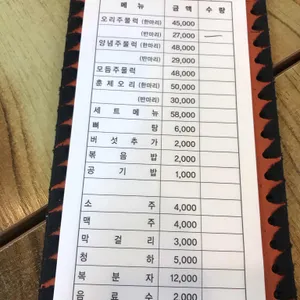 메 뉴 금 액 수 량
오리주물럭 (한마리) 45,000
(반마리) 27,000
양념주물럭 (한마리) 48,000
(반마리) 29,000
모듬주물럭 48,000
훈제오리 (한마리) 50,000
(반마리) 30,000
세트메뉴 58,000
뼈 탕 6,000
버섯추가 2,000
볶음밥 2,000
공기밥 1,000
소 주 4,000
맥 주 4,000
막걸리 3,000
청 하 5,000
복분자 12,000
음료수 2,000